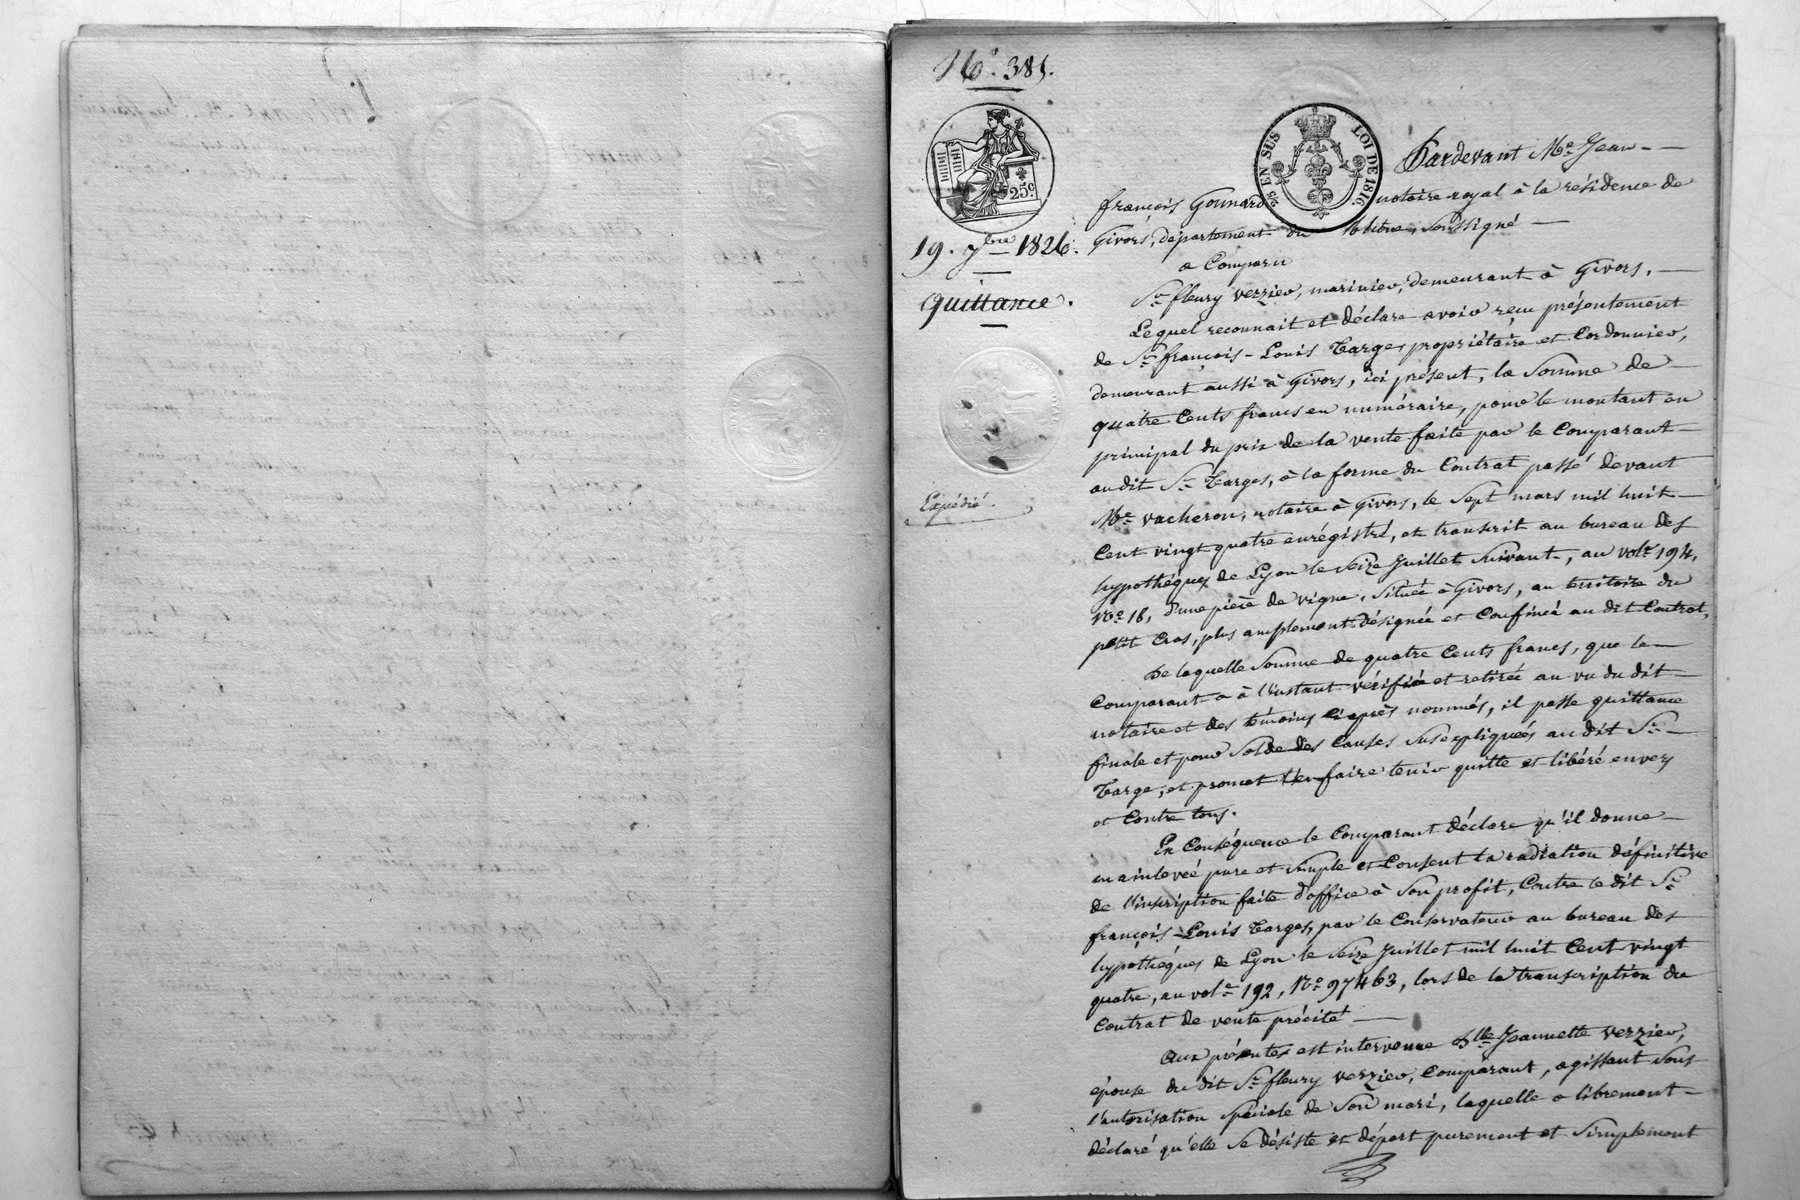 N.º 385.
25 c
2/5 EN SUS LOI DE 1816
19. 7bre 1826.
quittance.
Expédié
Pardevant Me Jean
françois Gonnard notaire royal à la résidence de
Givors, département du Rhône, soussigné
a Comparu
Sr fleury verzier, marinier, demeurant à Givors,
Lequel reconnait et déclare avoir reçu présentement
de Sr françois-Louis Targe, propriétaire et Cordonnier,
demeurant aussi à Givors, ici présent, la Somme de
quatre Cents francs en numéraire, pour le montant en
principal du prix de la vente faite par le Comparant
au dit Sr Targe, à la forme du Contrat passé devant
Me vacheron, notaire à Givors, le Sept mars mil huit
Cent vingt quatre enrégistré, et transcrit au bureau des
hypothéques de Lyon le Seize Juillet Suivant, au vole 194,
No 18, d'une pièce de vigne, Située à Givors, au territoire du
petit Cras, plus amplement désignée et Confinée au dit Contrat.
De laquelle Somme de quatre Cents francs, que le
Comparant a à l'instant vérifiée et retirée au vu du dit
notaire et des témoins Ciaprès nommés, il passe quittance
finale et pour Solde des Causes Susexpliquées au dit Sr
Targe, et promet l'en faire tenir quitte et libéré envers
et Contre tous.
En Conséquence le Comparant déclare qu'il donne
mainlevée pure et simple et Consent la radiation définitive
de l'inscription faite d'office à Son profit, Contre le dit Sr
françois-Louis Targe, par le Conservateur au bureau des
hypothéques de Lyon le Seize Juillet mil huit Cent vingt
quatre, au vole 192, No 97463, lors de la transcription du
Contrat de vente précité
Aux présentes est intervenue Dlle Jeannette verzier,
épouse du dit Sr fleury verzier, Comparant, agissant Sous
l'autorisation spéciale de Son mari, laquelle a librement
déclaré qu'elle Se désiste et départ purement et Simplement